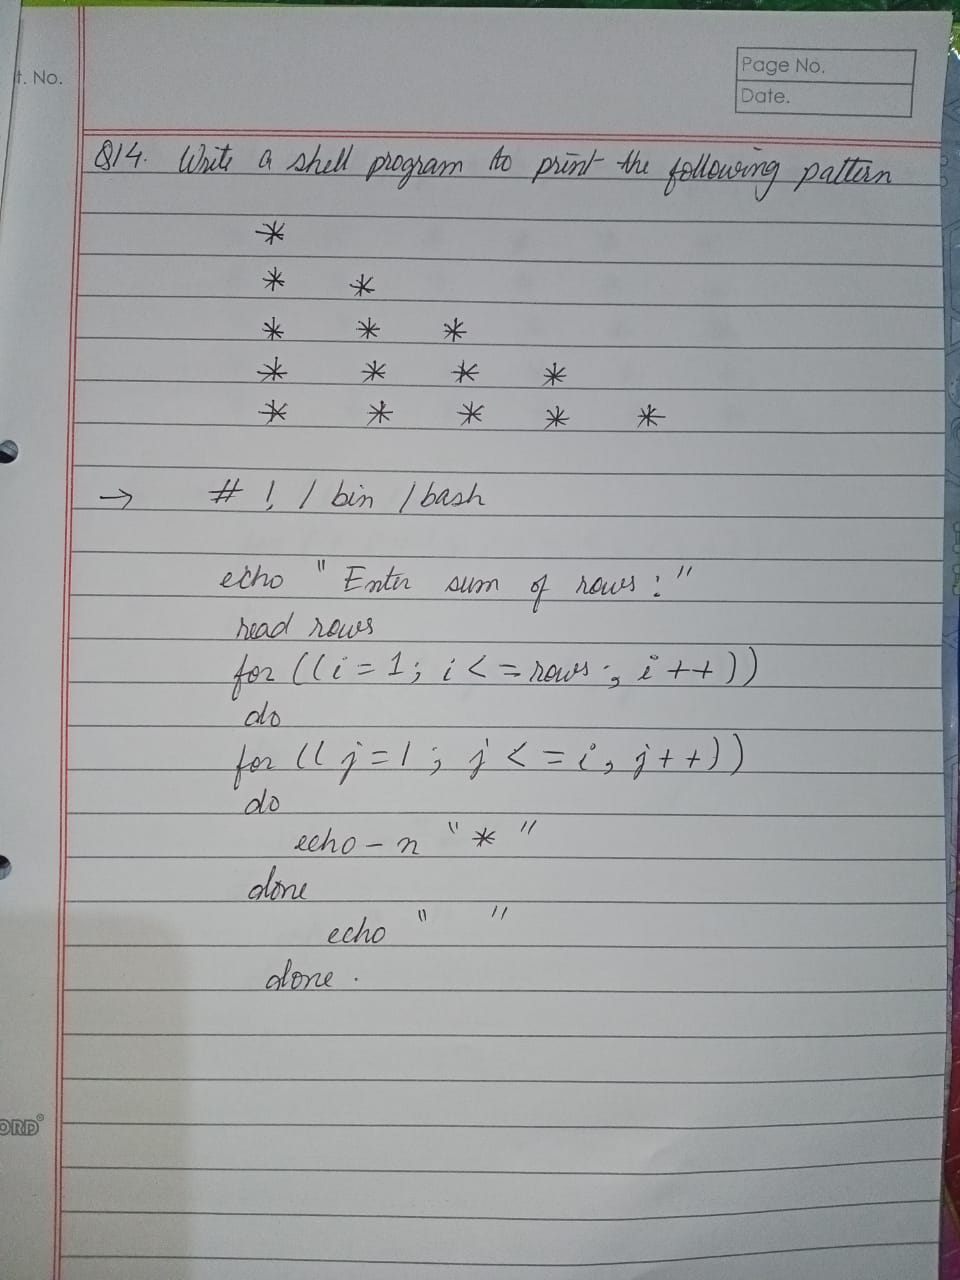 t. No.
Page No.
Date.
Q14. Write a shell program to print the following pattern
*
* *
* * *
* * * *
* * * * *
→ # ! / bin / bash
echo " Enter sum of rows : "
read rows
for ((i = 1; i < = rows ; i ++))
do
for (( j = 1 ; j < = i , j ++))
do
echo - n " * "
done
echo " "
done .
ORD